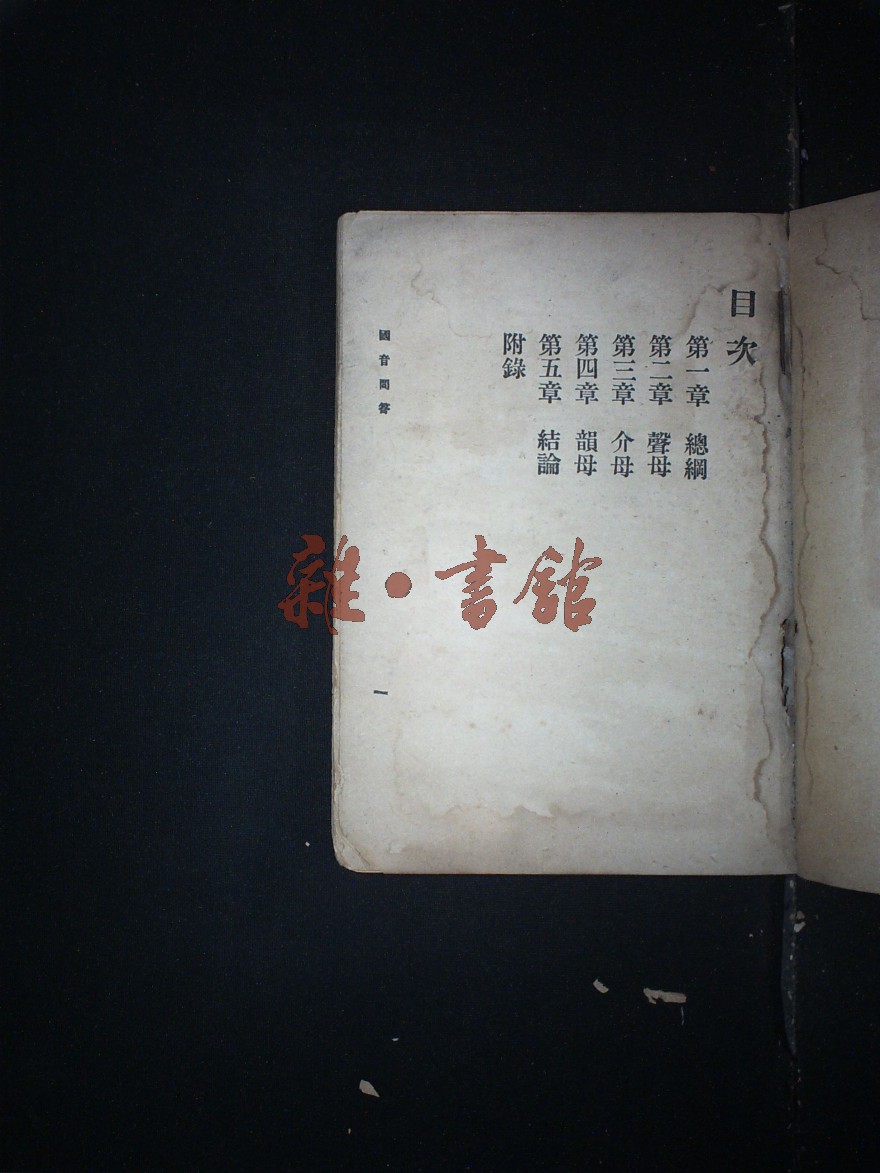 目次
第一章 總綱
第二章 聲母
第三章 介母
第四章 韻母
第五章 結論
附錄
國音問答
一
雜·書館